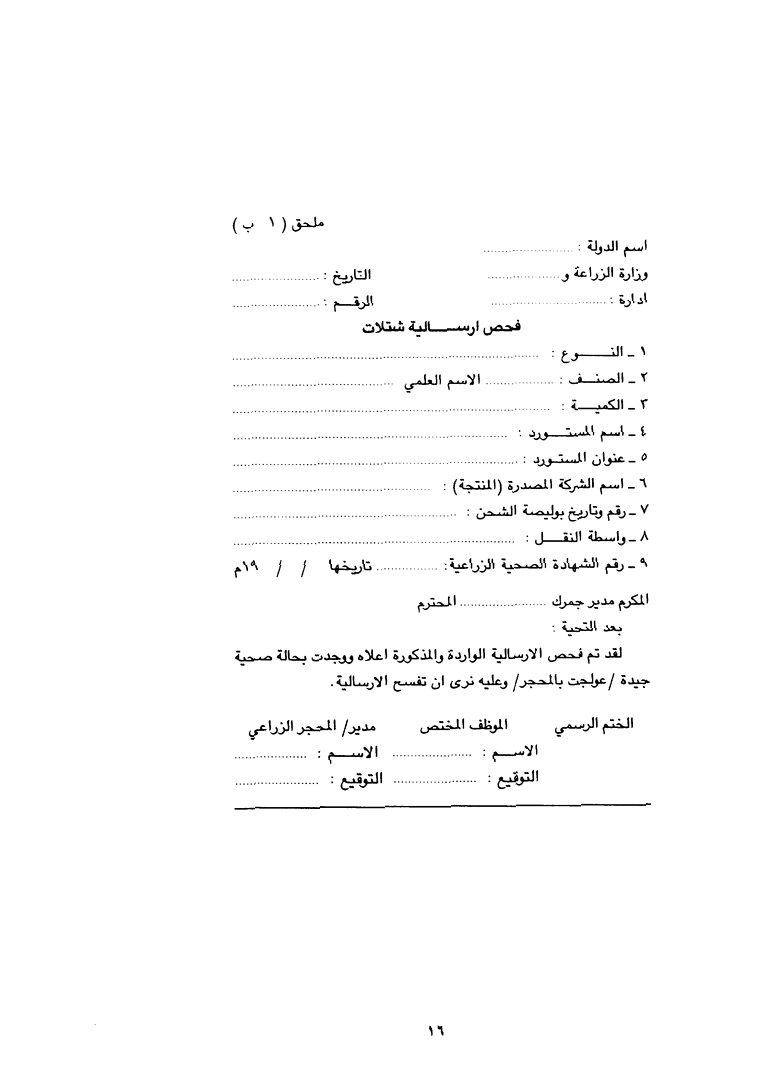 ملحق ( ١ ب )
اسم الدولة : ........................
وزارة الزراعة و ................... التاريخ : ........................
ادارة : ............................... الرقـــم : ........................
فحص ارســـــالية شتلات
١ ـ النـــــوع : ................................................................................
٢ ـ الصنــف : .................. الاسم العلمي ..........................................
٣ ـ الكميــــة : ................................................................................
٤ ـ اسم المستـــورد : ........................................................................
٥ ـ عنوان المستـورد : ........................................................................
٦ ـ اسم الشركة المصدرة (المنتجة) : ....................................................
٧ ـ رقم وتاريخ بوليصة الشحن : ..........................................................
٨ ـ واسطة النقــــل : ..........................................................................
٩ ـ رقم الشهادة الصحية الزراعية: ................ تاريخها / / ١٩م
المكرم مدير جمرك ....................... المحترم
بعد التحية :
لقد تم فحص الارسالية الواردة والمذكورة اعلاه ووجدت بحالة صحية
جيدة /عولجت بالمحجر/ وعليه نرى ان تفسح الارسالية.
الختم الرسمي الموظف المختص مدير/ المحجر الزراعي
الاســـم : ..................... الاســـم : ...................
التوقيع : ...................... التوقيع : ......................
١٦